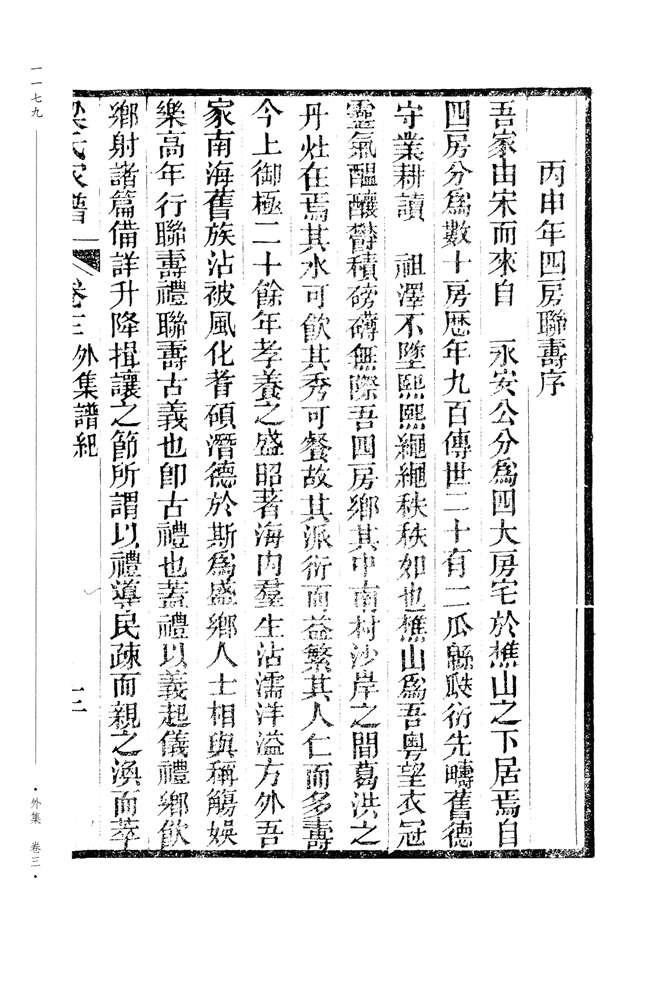 丙申年四房聯壽序
吾家由宋而來自　永安公分爲四大房宅於樵山之下居焉自
四房分爲數十房歷年九百傳世二十有二瓜緜瓞衍先疇舊德
守業耕讀　祖澤不墜熙熙繩繩秩秩如也樵山爲吾粵望衣冠
靈氣醞釀鬱積磅礴無際吾四房鄉其中南村沙岸之間葛洪之
丹灶在焉其水可飲其秀可餐故其派衍而益繁其人仁而多壽
今上御極二十餘年孝養之盛昭著海內羣生沾濡洋溢方外吾
家南海舊族沾被風化耆碩潛德於斯爲盛鄉人士相與稱觴娛
樂高年行聯壽禮聯壽古義也卽古禮也蓋禮以義起儀禮鄉飲
鄉射諸篇備詳升降揖讓之節所謂以禮導民疎而親之渙而萃
梁氏家譜　卷三　外集譜紀　十二
一一七九
·外集　卷三·